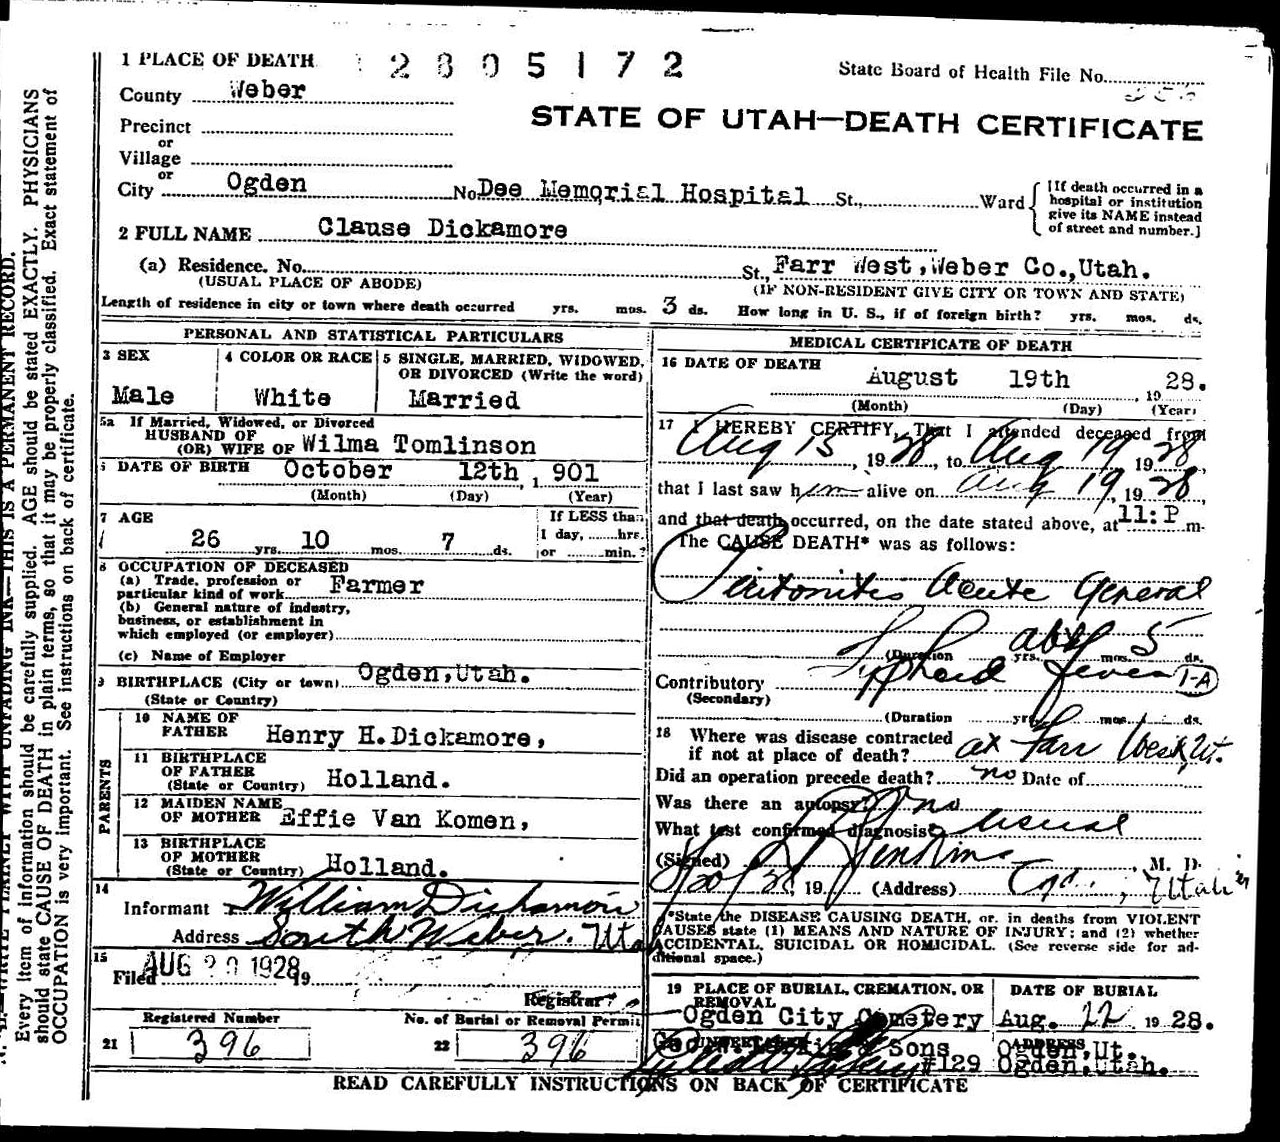 1 PLACE OF DEATH 2805172
State Board of Health File No.
County Weber
STATE OF UTAH—DEATH CERTIFICATE
Precinct
or
Village
or
City Ogden No. Dee Memorial Hospital St., Ward
[If death occurred in a
hospital or institution
give its NAME instead
of street and number.]
2 FULL NAME Clause Dickamore
(a) Residence. No. St., Farr West, Weber Co., Utah.
(USUAL PLACE OF ABODE) (IF NON-RESIDENT GIVE CITY OR TOWN AND STATE)
Length of residence in city or town where death occurred yrs. mos. 3 ds. How long in U. S., if of foreign birth? yrs. mos. ds.
PERSONAL AND STATISTICAL PARTICULARS
3 SEX
Male
4 COLOR OR RACE
White
5 SINGLE, MARRIED, WIDOWED,
OR DIVORCED (Write the word)
Married
5a If Married, Widowed, or Divorced
HUSBAND OF
(OR) WIFE OF Wilma Tomlinson
6 DATE OF BIRTH October 12th, 1901
(Month) (Day) (Year)
7 AGE
26 yrs. 10 mos. 7 ds.
If LESS than
1 day, hrs.
or min.?
8 OCCUPATION OF DECEASED
(a) Trade, profession or
particular kind of work Farmer
(b) General nature of industry,
business, or establishment in
which employed (or employer)
(c) Name of Employer
9 BIRTHPLACE (City or town) Ogden, Utah.
(State or Country)
PARENTS
10 NAME OF
FATHER Henry H. Dickamore,
11 BIRTHPLACE
OF FATHER
(State or Country) Holland.
12 MAIDEN NAME
OF MOTHER Effie Van Komen,
13 BIRTHPLACE
OF MOTHER
(State or Country) Holland.
14
Informant William Dickamore
Address South Weber. Utah
15
Filed AUG 20 1928 19
Registrar
Registered Number
21 396
No. of Burial or Removal Permit
22 396
MEDICAL CERTIFICATE OF DEATH
16 DATE OF DEATH
August 19th, 1928.
(Month) (Day) (Year)
17 I HEREBY CERTIFY, That I attended deceased from
Aug 15, 1928, to Aug 19 1928
that I last saw him alive on Aug 19, 1928,
and that death occurred, on the date stated above, at 11:P m.
The CAUSE DEATH* was as follows:
Peritonitis Acute General
(Duration yrs. mos. abt 5 ds.
Contributory Typhoid fever 1-A
(Secondary)
(Duration yrs. mos. ds.
18 Where was disease contracted
if not at place of death? at Farr West Ut.
Did an operation precede death? no Date of
Was there an autopsy? no
What test confirmed diagnosis? usual
(Signed) Jenkins M. D.
8/20/28, 19 (Address) Ogd., Utah
*State the DISEASE CAUSING DEATH, or, in deaths from VIOLENT
CAUSES state (1) MEANS AND NATURE OF INJURY; and (2) whether
ACCIDENTAL, SUICIDAL OR HOMICIDAL. (See reverse side for ad-
ditional space.)
19 PLACE OF BURIAL, CREMATION, OR
REMOVAL
Ogden City Cemetery
DATE OF BURIAL
Aug. 22, 1928.
UNDERTAKER
& Sons
#129
ADDRESS
Ogden, Ut.
Ogden, Utah.
READ CAREFULLY INSTRUCTIONS ON BACK OF CERTIFICATE
WRITE PLAINLY WITH UNFADING INK—THIS IS A PERMANENT RECORD.
Every item of information should be carefully supplied. AGE should be stated EXACTLY. PHYSICIANS
should state CAUSE OF DEATH in plain terms, so that it may be properly classified. Exact statement of
OCCUPATION is very important. See instructions on back of certificate.